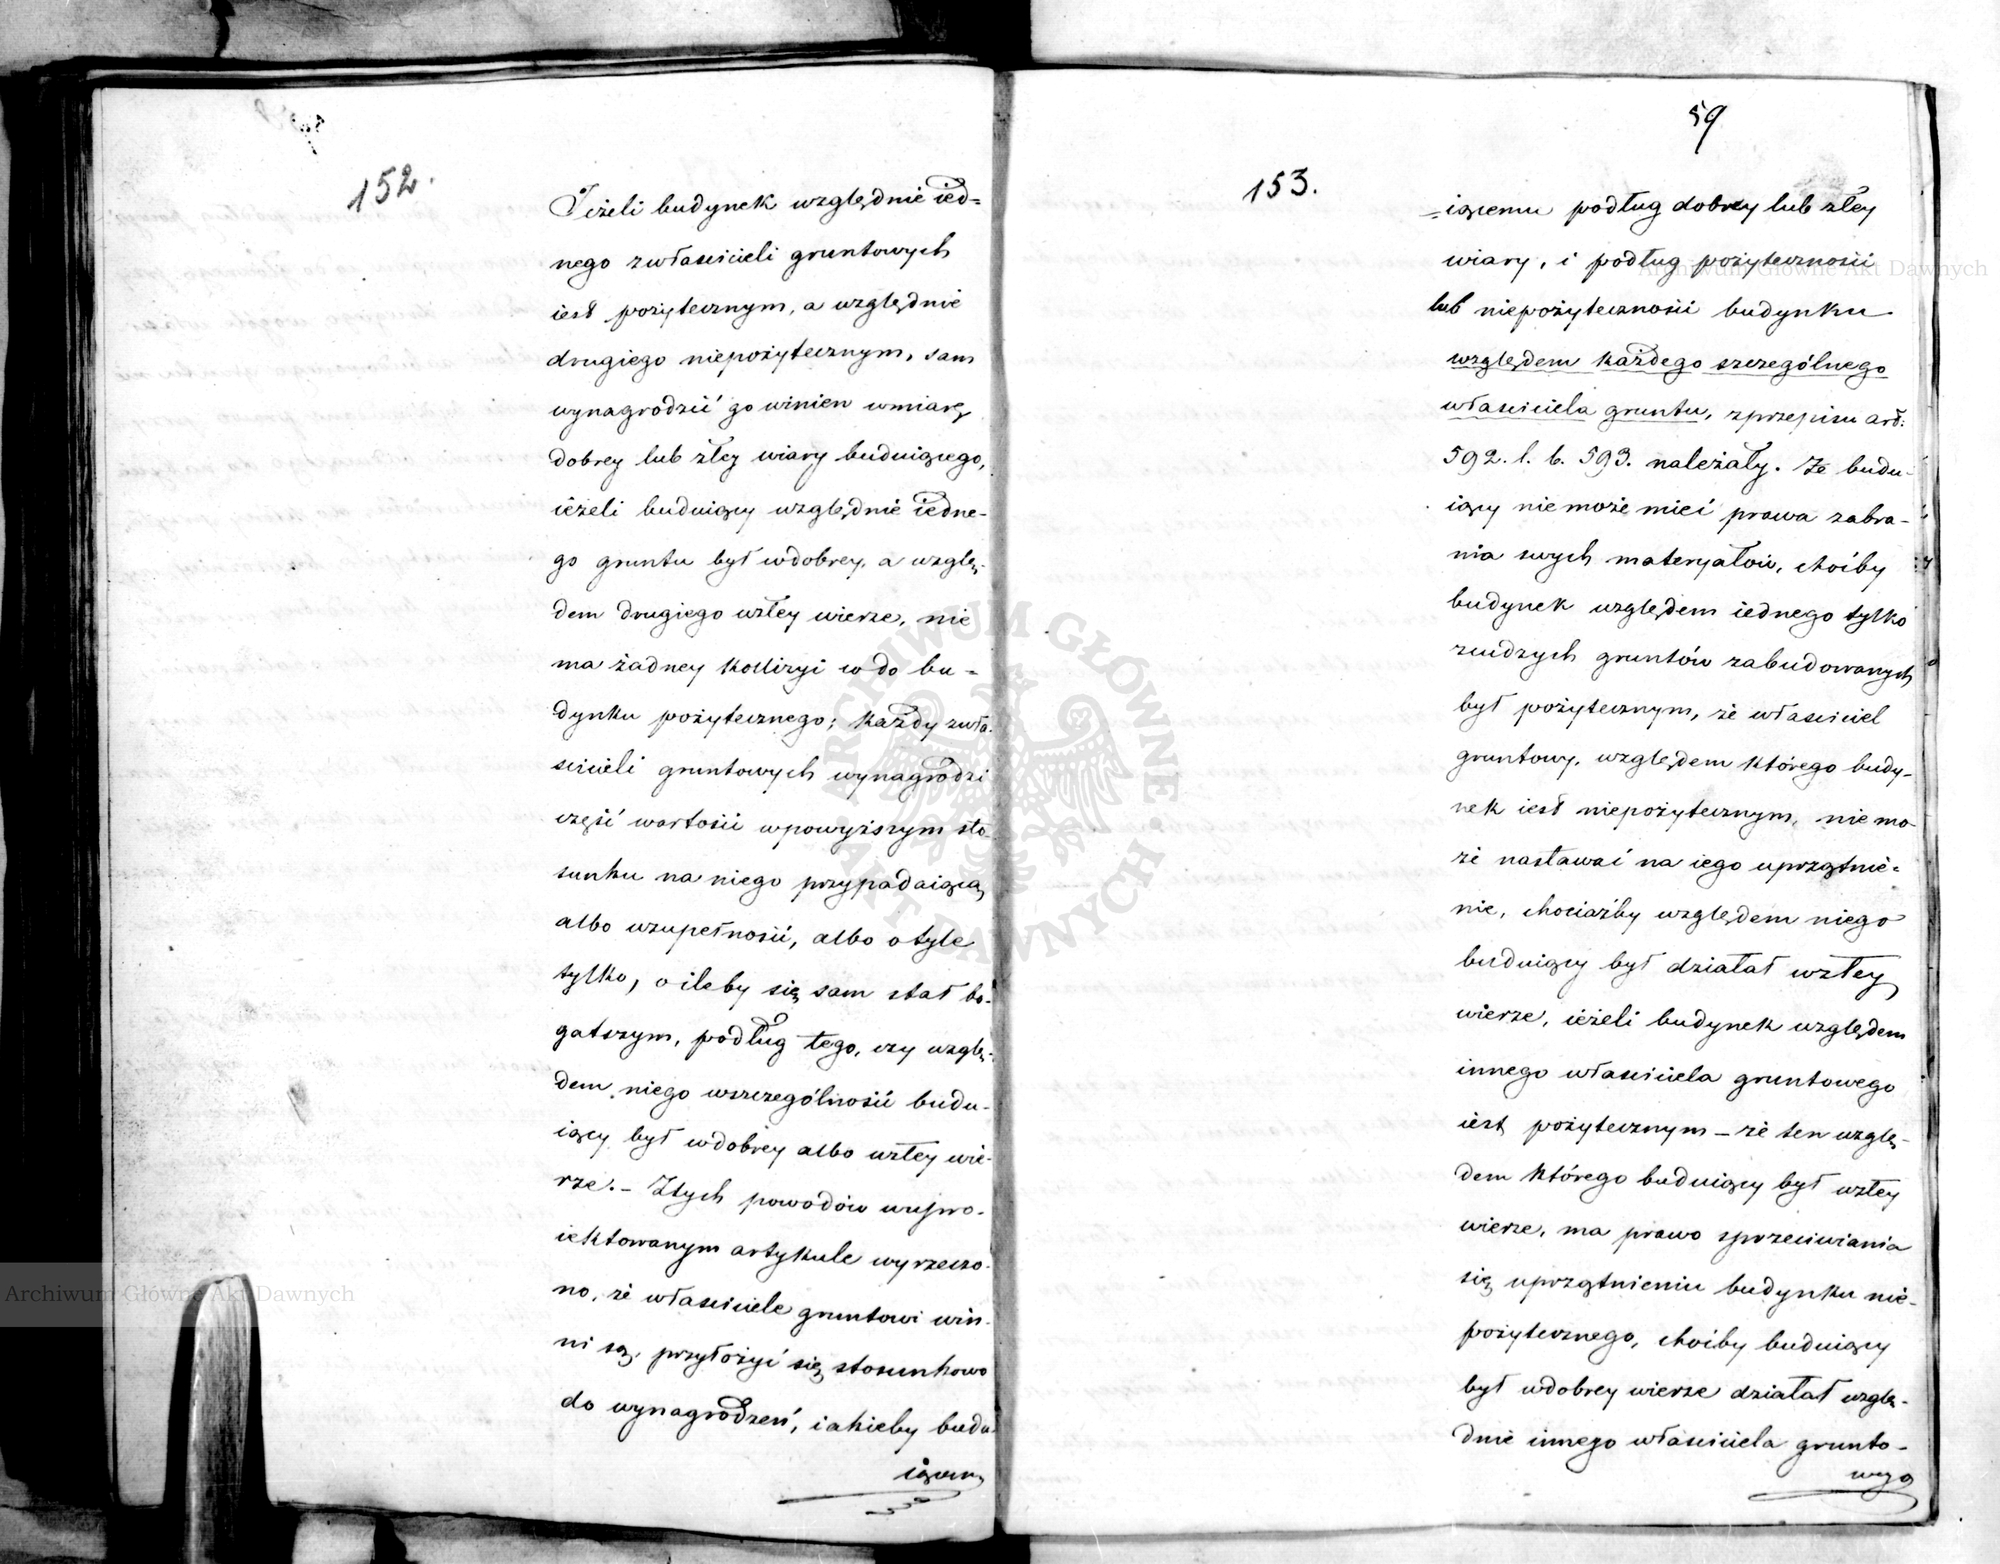 152.
Jeżeli budynek względnie ied=
nego zwłaścicieli gruntowych
iest pożytecznym, a względnie
drugiego niepożytecznym, sam
wynagrodzić go winien wmiarę
dobrey lub złey wiary buduiącego,
ieżeli buduiący względnie iedne-
go gruntu był wdobrey, a wzglę-
dem drugiego wzłey wierze, nie
ma żadney kollizyi codo bu-
dynku pożytecznego; każdy zwła-
ścicieli gruntowych wynagrodzi
część wartości wpowyższym sto
sunku na niego przypadaiącą,
albo wzupełności, albo otyle
tylko, o ileby się sam stał bo-
gatszym, podług tego, czy wzglę-
dem niego wszczególności budu-
iący był wdobrey albo wzłey wie-
rze. – Ztych powodów wupro-
iektowanym artykule wyrzeczo-
no, że właściciele gruntowi win-
ni są, przyłożyć się stosunkowo
do wynagrodzeń, iakieby budu
iącemu
59
153.
=iącemu podług dobrey lub złey
wiary, i podług pożyteczności
lub niepożyteczności budynku
względem każdego szczególnego
właściciela gruntu, zprzepisu art:
592. l. b. 593. należały. Że budu-
iący niemoże mieć prawa zabra-
nia swych materyałów, choćby
budynek względem iednego tylko
zcudzych gruntów zabudowanych
był pożytecznym, że właściciel
gruntowy, względem którego budy-
nek iest niepożytecznym, niemo-
że nastawać na iego uprzątnie-
nie, chociażby względem niego
buduiący był działał wzłey
wierze, ieżeli budynek względem
innego właściciela gruntowego
iest pożytecznym – że ten wzglę-
dem którego buduiący był wzłey
wierze, ma prawo sprzeciwiania
się uprzątnieniu budynku nie-
pożytecznego, choćby buduiący
był wdobrey wierze działał wzglę-
dnie innego właściciela grunto-
wego
Archiwum Główne Akt Dawnych
Archiwum Główne Akt Dawnych
ARCHIWUM GŁÓWNE
AKT DAWNYCH